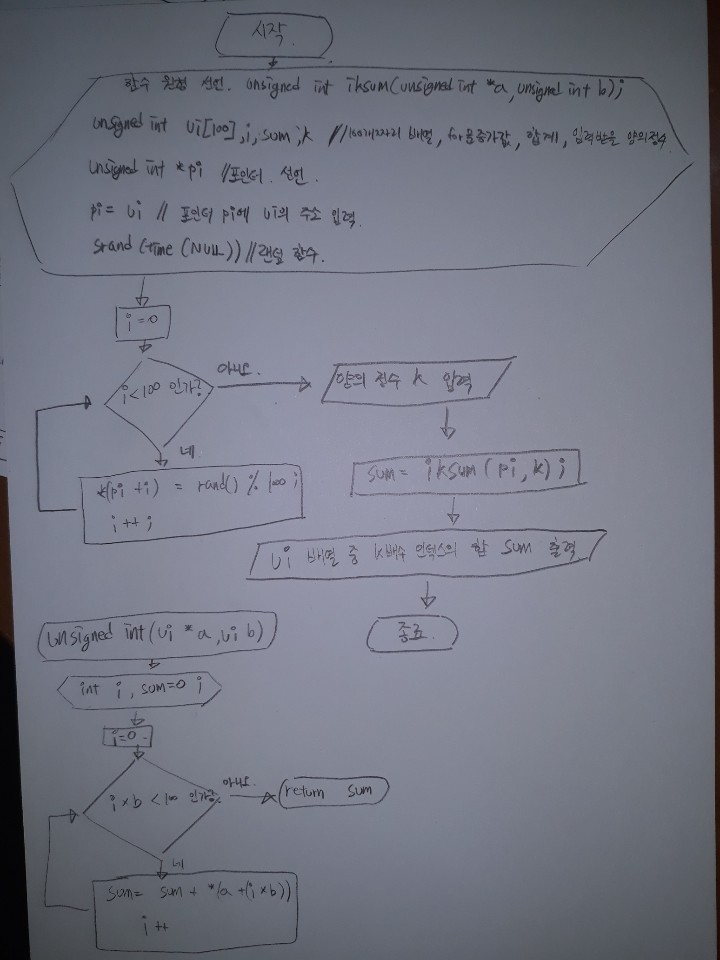 시작.
함수 원형 선언. unsigned int iksum(unsigned int *a, unsigned int b);
unsigned int ui[100], i, sum, k //100개짜리 배열, for문증가값, 합계, 입력받을 양의정수
unsigned int *pi //포인터 선언.
pi = ui // 포인터 pi에 ui의 주소 입력.
srand(time(NULL)) //랜덤 함수.
i=0
i<100 인가?
아니오.
네
*(pi+i) = rand() % 100;
i++;
양의 정수 k 입력
sum = iksum(pi, k);
ui 배열 중 k배수 인덱스의 합 sum 출력
종료.
unsigned int(ui *a, ui b)
int i, sum=0;
i=0.
i×b <100 인가?
아니오.
return sum
네
sum= sum + *(a+(i×b))
i++